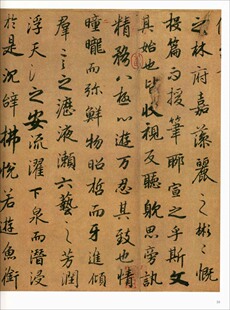 之林府嘉藻麗之彬〻慨
投篇而援筆聊宣之乎斯文
其始也皆收視反聽耽思旁訊
精騖八極心遊万仞其致也情
曈曨而弥鮮物昭晢而互進傾
羣言之瀝液漱六藝之芳潤
浮天淵之安流濯下泉而潛浸
於是沉辭怫悅若遊魚銜